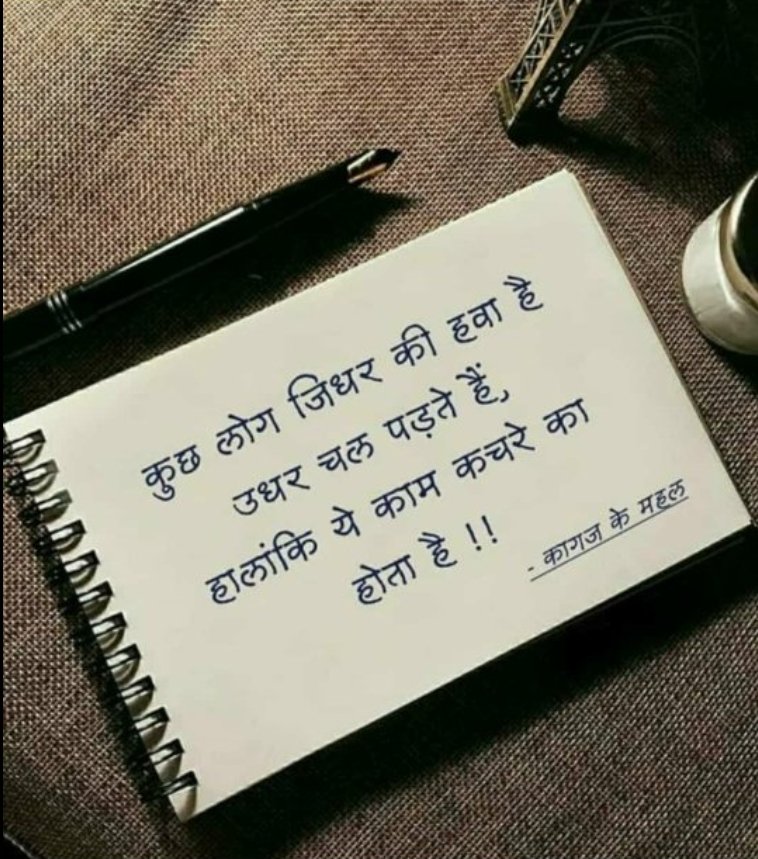 कुछ लोग जिधर की हवा है
उधर चल पड़ते हैं,
हालांकि ये काम कचरे का
होता है !!
- कागज के महल